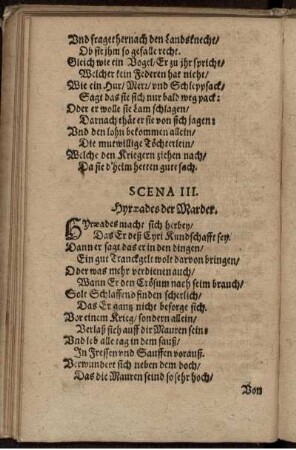 Vnd fraget hernach den Landsknecht/
Ob sie jhm so gefalle recht.
Gleich wie ein Vogel/ Er zu jhr spricht/
Welcher kein Federen hat nicht/
Wie ein Hur/ Merz/ vnd Schleppsack/
Sagt das sie sich nur bald weg pack:
Oder er wolle sie Lam schlagen/
Darnach thät er sie von sich jagen:
Vnd den lohn bekommen allein/
Die mutwillige Töchterlein/
Welche den Kriegern ziehen nach/
Da sie d'heim hetten gute sach.
SCENA III.
Hyræades der Marder.
Hyræades macht sich herbey/
Das Er deß Cyri Kundschafft sey.
Dann er sagt das er in den dingen/
Ein gut Tranckgelt wolt darvon bringen/
Oder was mehr verdienen auch/
Wann Er den Crösum nach seim brauch/
Solt Schlaffend finden scherlich/
Das Er gantz nicht besorge sich.
Vor einem Krieg/ sondern allein/
Verlaß sich auff die Mauren sein:
Vnd leb alle tag in dem sauß/
In Fressen vnd Sauffen vorauß.
Verwundert sich neben dem doch/
Das die Mauren seind so sehr hoch/
Von